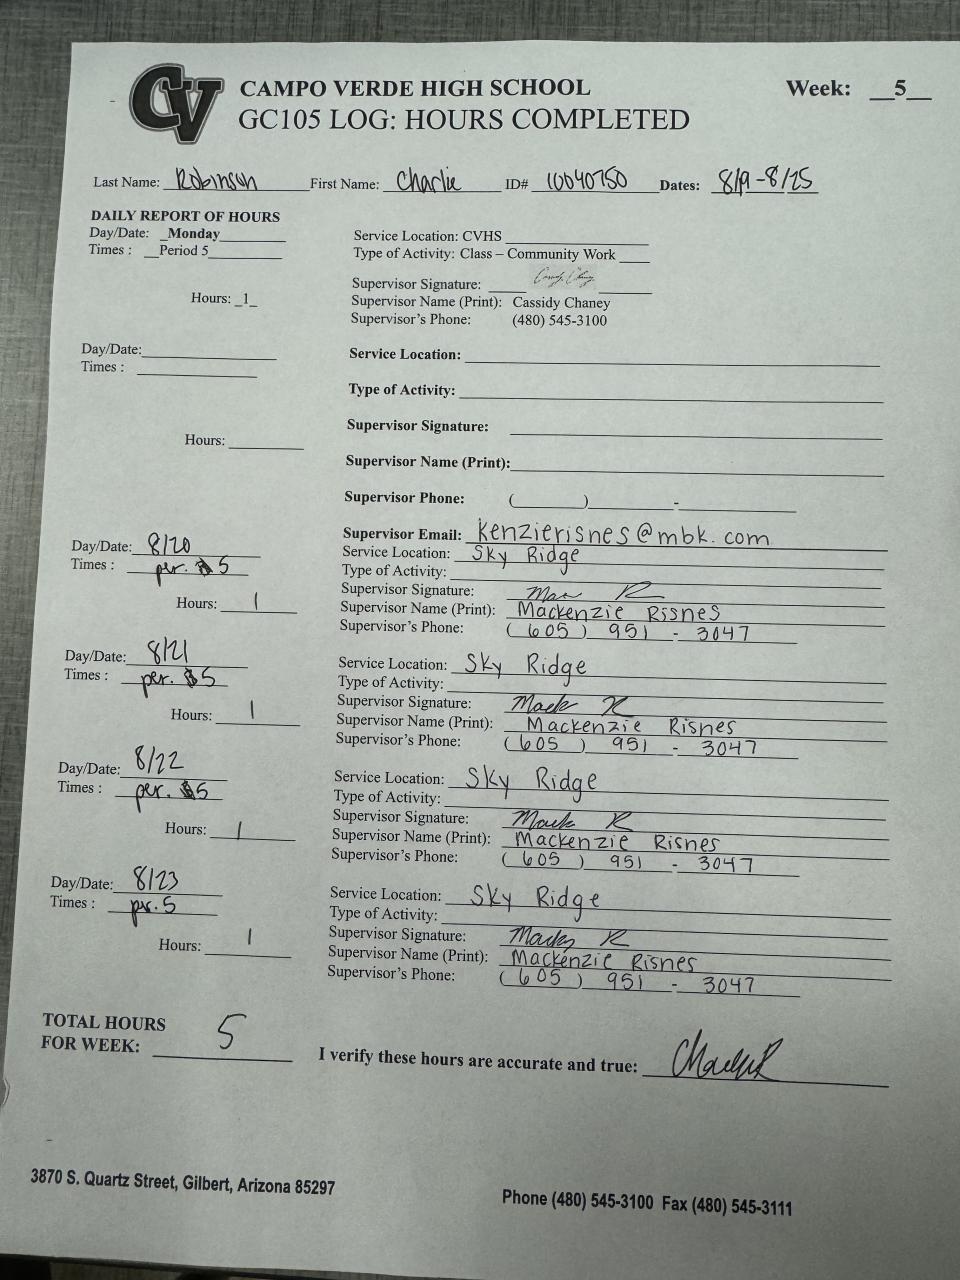 CV CAMPO VERDE HIGH SCHOOL Week: __5__
GC105 LOG: HOURS COMPLETED
Last Name: Robinson First Name: Charlie ID# 10040750 Dates: 8/19-8/25
DAILY REPORT OF HOURS
Day/Date: _Monday
Times : __Period 5
Hours: _1_
Service Location: CVHS
Type of Activity: Class – Community Work
Supervisor Signature:
Supervisor Name (Print): Cassidy Chaney
Supervisor's Phone: (480) 545-3100
Day/Date:
Times :
Hours:
Service Location:
Type of Activity:
Supervisor Signature:
Supervisor Name (Print):
Supervisor Phone: ( ) -
Supervisor Email: kenzierisnes@mbk.com
Day/Date: 8/20
Times : per. 5
Hours: 1
Service Location: Sky Ridge
Type of Activity:
Supervisor Signature:
Supervisor Name (Print): Mackenzie Risnes
Supervisor's Phone: (605) 951 - 3047
Day/Date: 8/21
Times : per. 5
Hours: 1
Service Location: Sky Ridge
Type of Activity:
Supervisor Signature: Mack R
Supervisor Name (Print): Mackenzie Risnes
Supervisor's Phone: (605) 951 - 3047
Day/Date: 8/22
Times : per. 5
Hours: 1
Service Location: Sky Ridge
Type of Activity:
Supervisor Signature: Mack R
Supervisor Name (Print): Mackenzie Risnes
Supervisor's Phone: (605) 951 - 3047
Day/Date: 8/23
Times : per. 5
Hours: 1
Service Location: Sky Ridge
Type of Activity:
Supervisor Signature:
Supervisor Name (Print): Mackenzie Risnes
Supervisor's Phone: (605) 951 - 3047
TOTAL HOURS
FOR WEEK: 5
I verify these hours are accurate and true:
3870 S. Quartz Street, Gilbert, Arizona 85297
Phone (480) 545-3100 Fax (480) 545-3111